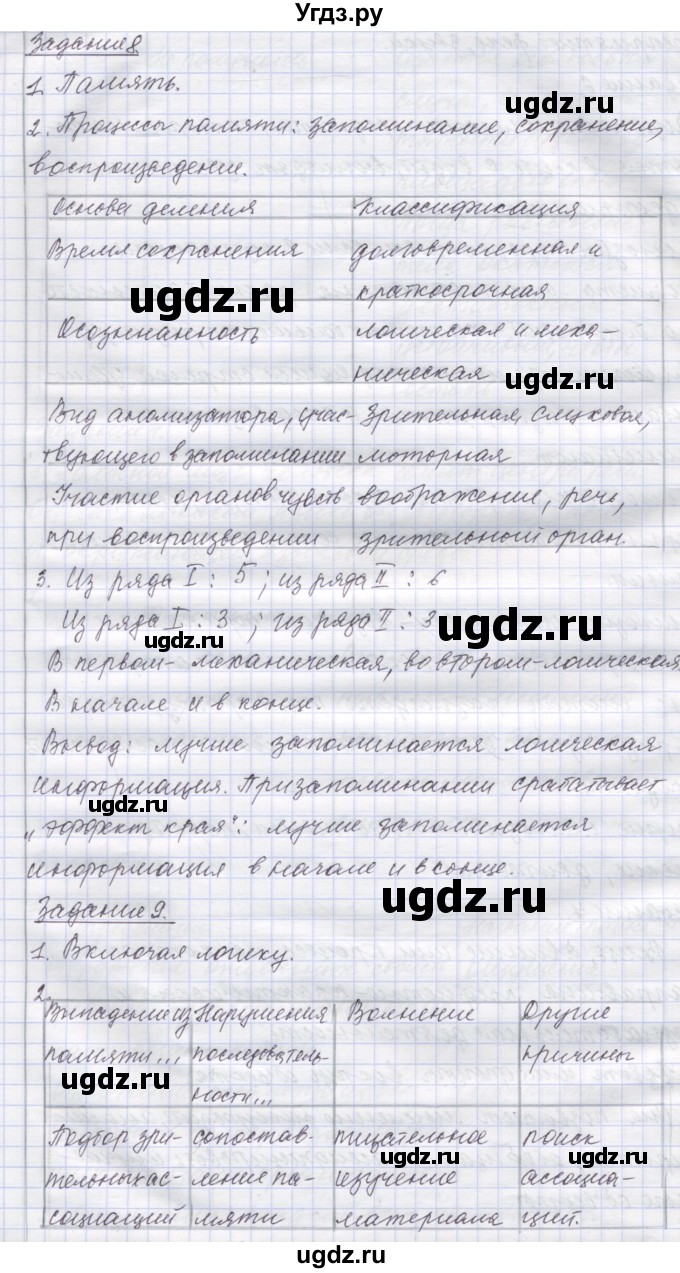 Угдз.ру
Задание 8
1. Память.
2. Процессы памяти: запоминание, сохранение,
воспроизведение.
Основа деления Классификация
Время сохранения долговременная и
краткосрочная
ugdz.ru
ugdz.ru
Осознанность логическая и меха-
ническая
ugdz.ru
Вид анализатора, учас- Зрительная, слуховая,
твующего в запоминании моторная
Участие органов чувств воображение, речь,
при воспроизведении зрительный орган.
3. Из ряда I : 5 ; из ряда II : 6
Из ряда I : 3 ; из ряда II : 3
ugdz.ru
ugdz.ru
В первом- механическая, во втором-логическая.
В начале и в конце.
Вывод: лучше запоминается логическая
информация. При запоминании срабатывает
ugdz.ru
„эффект края“: лучше запоминается
информация в начале и в конце.
ugdz.ru
Задание 9.
1. Включая логику.
2.
Выпадение из Нарушения Волнение Другие
памяти... последователь- причины
ности...
ugdz.ru
Подбор зри- сопостав- тщательное поиск
тельных ас- ление па- изучение ассоциа-
социаций мяти материала ций.
ugdz.ru
ugdz.ru
ugdz.ru